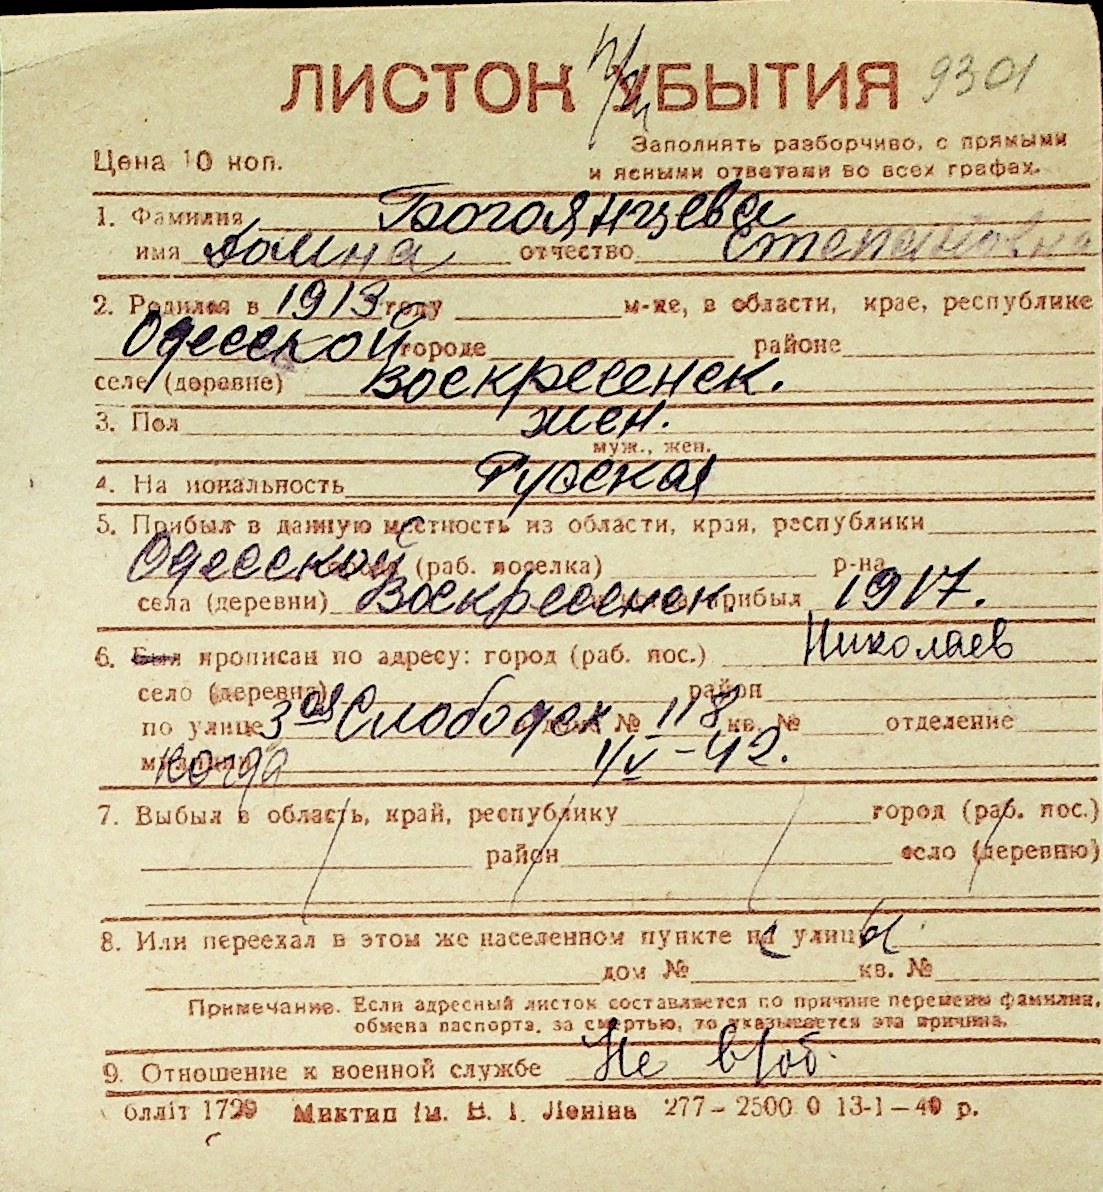 ЛИСТОК УБЫТИЯ 9301
Цена 10 коп.
Заполнять разборчиво, с прямыми
и ясными ответами во всех графах.
1. Фамилия Богоянцева
имя Домна отчество Степановна
2. Родился в 1913 году м-це, в области, крае, республике
Одесской городе районе
селе (деревне) Воскресенск.
3. Пол жен.
муж., жен.
4. На иональность Русская
5. Прибыл в данную местность из области, края, республики
Одесской (раб. поселка) р-на
села (деревни) Воскресенск. прибыл 1917.
6. Был прописан по адресу: город (раб. пос.) Николаев
село (деревня) район
по улице 3ая Слободск дом № 118 кв. № отделение
милиции когда 1/V-42.
7. Выбыл в область, край, республику город (раб. пос.)
район село (деревню)
8. Или переехал в этом же населенном пункте на улицы
дом № кв. №
Примечание. Если адресный листок составляется по причине перемены фамилии,
обмена паспорта, за смертью, то указывается эта причина.
9. Отношение к военной службе Не в/об.
блліт 1729 Миктип ім. В. І. Леніна 277-2500 0 13-1-40 р.